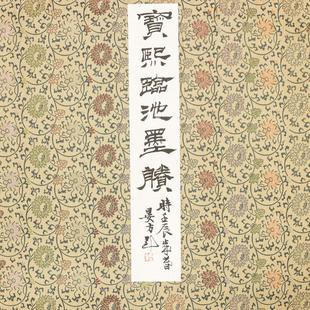 寶熙臨池墨蹟
時壬辰
晏方